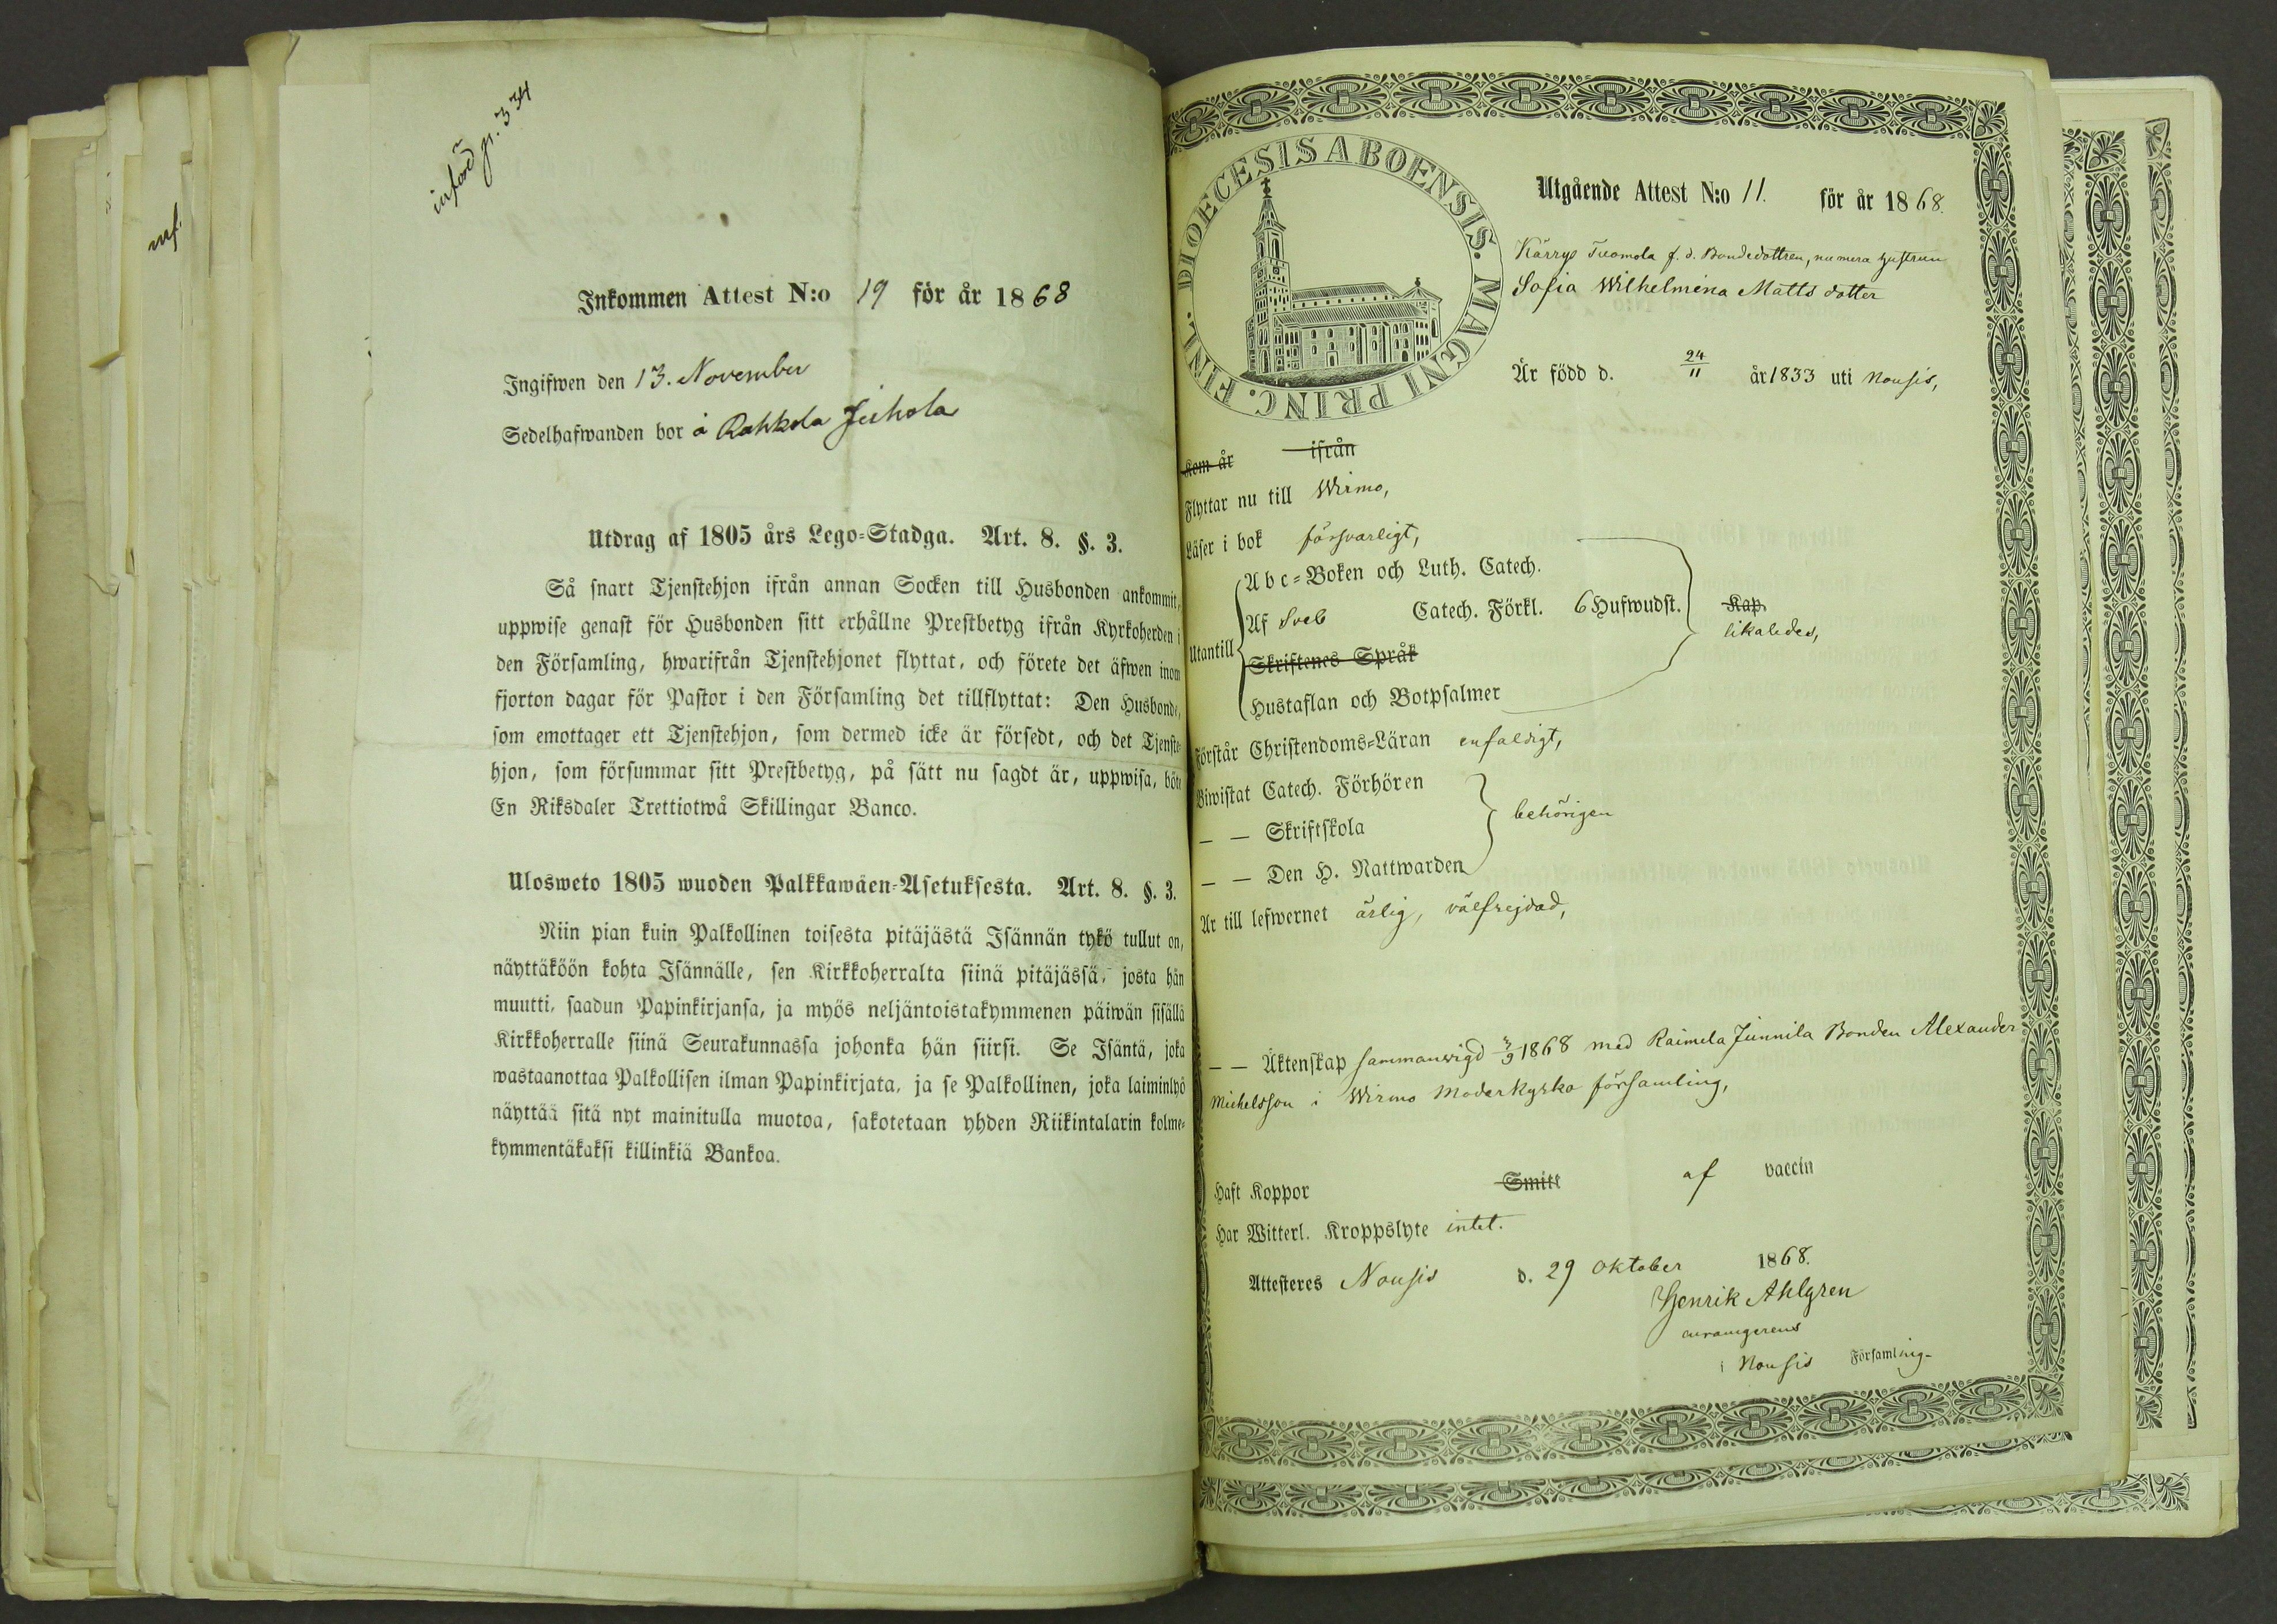 införd p. 334
inf.
Inkommen Attest N:o 19 för år 1868
Ingifwen den 13. November
Sedelhafwanden bor å Rahkola Juhola
Utdrag af 1805 års Lego-Stadga. Art. 8. §. 3.
Så snart Tjenstehjon ifrån annan Socken till Husbonden ankommit,
uppwise genast för Husbonden sitt erhållne Prestbetyg ifrån Kyrkoherden i
den Församling, hwarifrån Tjenstehjonet flyttat, och förete det äfwen inom
fjorton dagar för Pastor i den Församling det tillflyttat: Den Husbonde,
som emottager ett Tjenstehjon, som dermed icke är försedt, och det Tjenste-
hjon, som försummar sitt Prestbetyg, på sätt nu sagdt är, uppwisa, böte
En Riksdaler Trettiotwå Skillingar Banco.
Ulosweto 1805 wuoden Palkkawäen-Asetuksesta. Art. 8. §. 3.
Niin pian kuin Palkollinen toisesta pitäjästä Isännän tykö tullut on,
näyttäköön kohta Isännälle, sen Kirkkoherralta siinä pitäjässä, josta hän
muutti, saadun Papinkirjansa, ja myös neljäntoistakymmenen päiwän sisällä
Kirkkoherralle siinä Seurakunnassa johonka hän siirsi. Se Isäntä, joka
wastaanottaa Palkollisen ilman Papinkirjata, ja se Palkollinen, joka laiminlyö
näyttää sitä nyt mainitulla muotoa, sakotetaan yhden Riikintalarin kolme-
kymmentäkaksi killinkiä Bankoa.
DIOECESIS ABOENSIS. MAGNI PRINC. FINL.
Utgående Attest N:o 11. för år 1868.
Kärrys Tuomola f. d. Bondedottren, numera hustrun
Sofia Wilhelmina Matts dotter
Är född d. 24/11 år 1833 uti Nousis,
Kom år ifrån
Flyttar nu till Wirmo,
Läser i bok försvarligt,
Abc-Boken och Luth. Catech.
Af Sveb Catech. Förkl. 6 Hufwudst. Kap.
likaledes,
Utantill
Skriftenes Språk
Hustaflan och Botpsalmer
Förstår Christendoms-Läran enfaldigt,
Biwistat Catech. Förhören
— — Skriftskola behörigen
— — Den H. Nattwarden
Är till lefwernet ärlig, välfrejdad,
— — Äktenskap sammanvigd 3/9 1868 med Raimela Junnila Bonden Alexander
Michelsson i Wirmo Moderkyrko församling,
Haft Koppor Smitt af vaccin
Har Witterl. Kroppslyte intet.
Attesteres Nousis d. 29 Oktober 1868.
Henrik Ahlgren
curamgerens
i Nousis Församling.